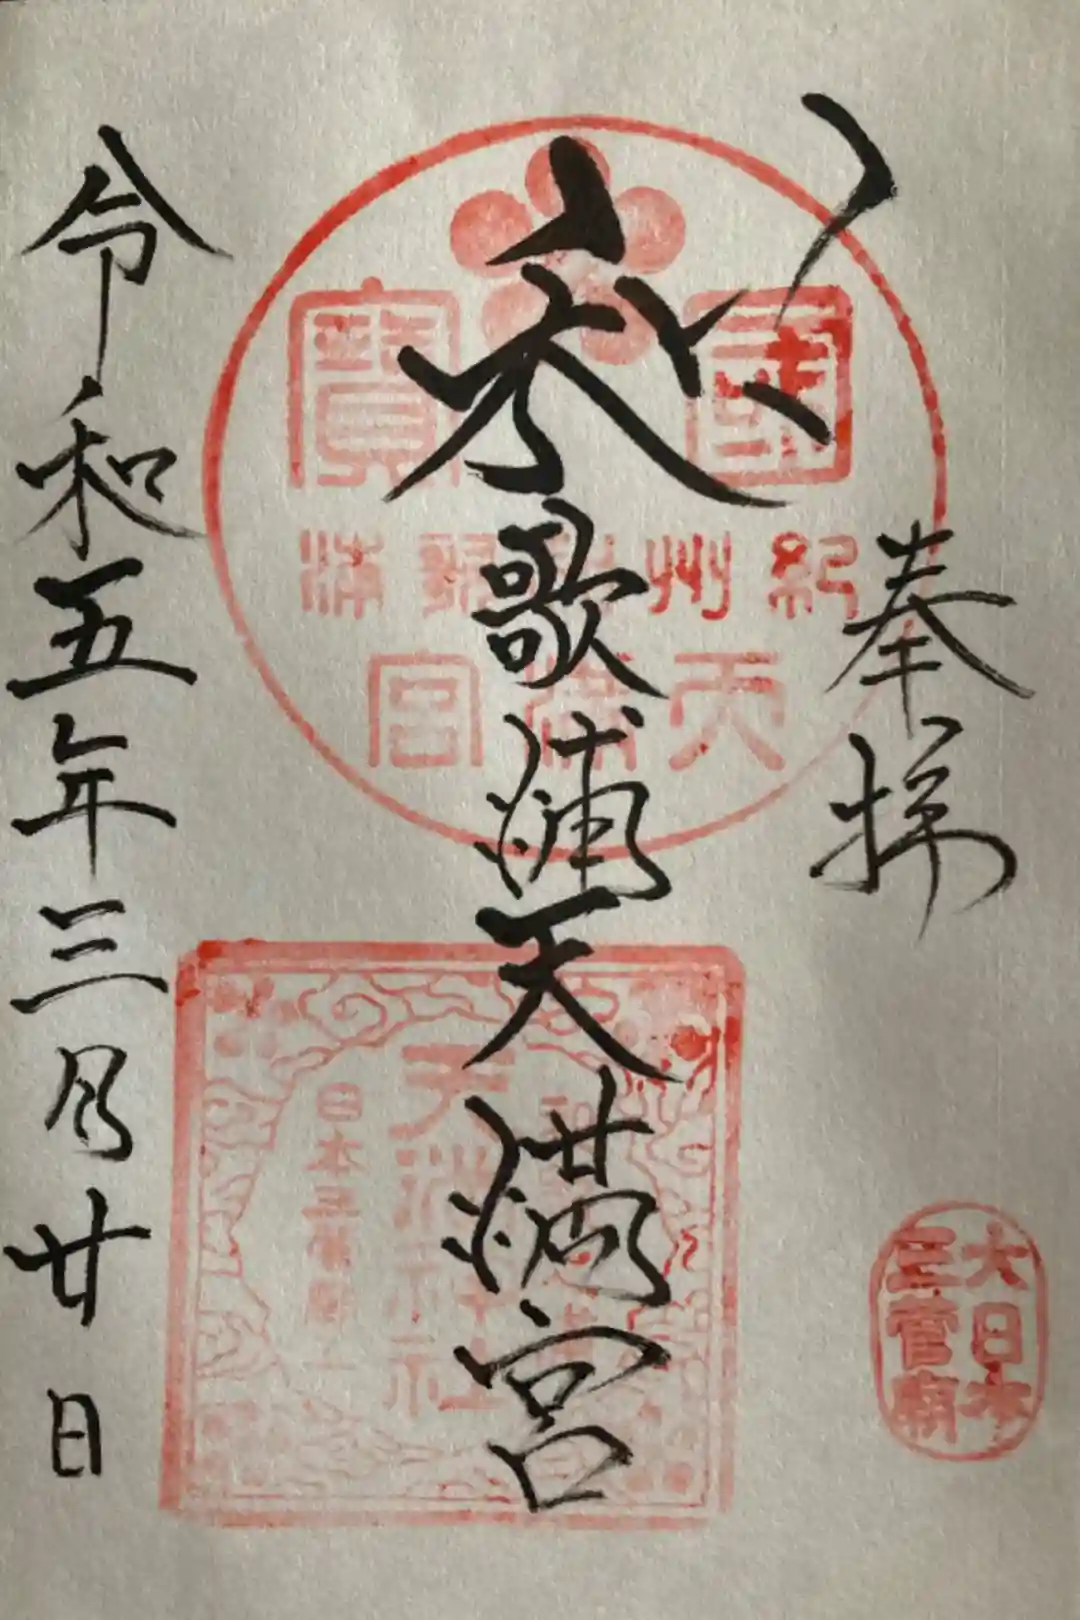 奉拝
大日本
三菅廟
和歌浦天満宮
國寶
紀州和歌浦
天満宮
天満神社
令和五年三月廿日